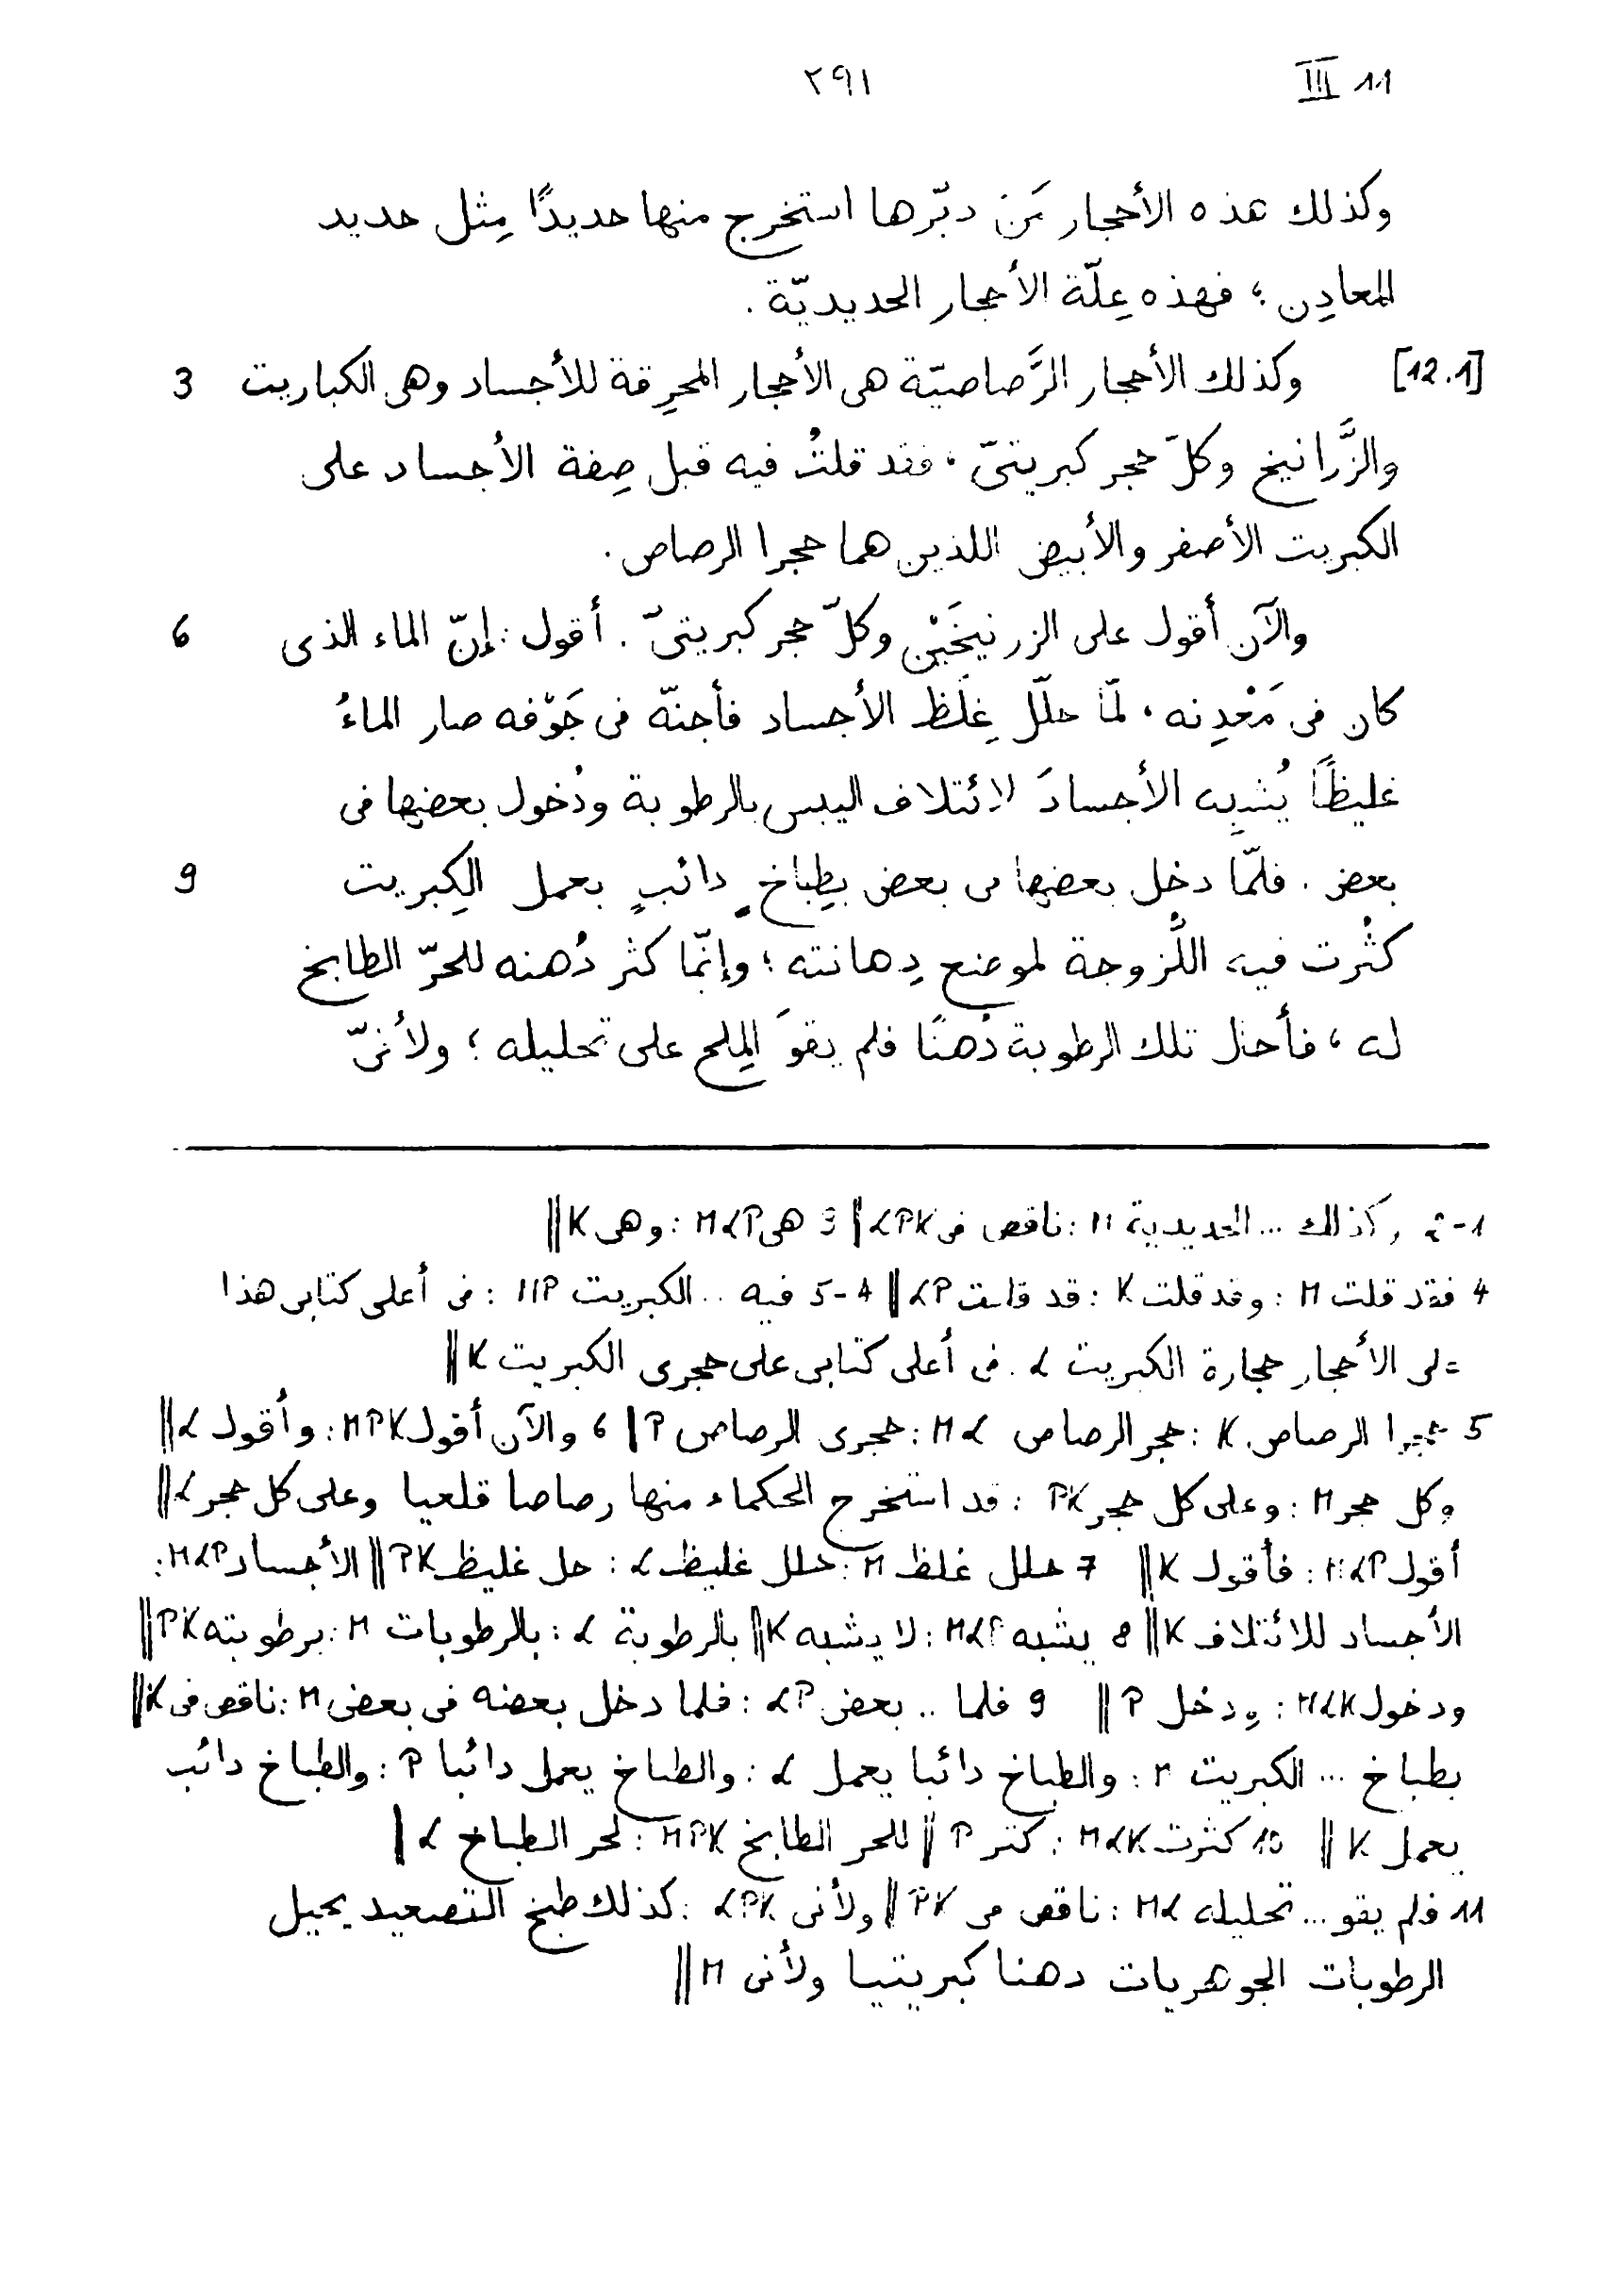 III 11 ٢٩١
وكذلك هذه الأحجار مَن دبّرها استخرج منها حديدًا مِثل حديد
المعادِن ؛ فهذه عِلّة الأحجار الحديديّة .
[12.1] وكذلك الأحجار الرَّصاصيّة هى الأحجار المحرِقة للأجساد وهى الكباريت 3
والزَّرانيخ وكلّ حجر كبريتىّ ، فقد قلتُ فيه قبل صِفة الأجساد على
الكبريت الأصفر والأبيض اللذين هما حجرا الرصاص .
والآن أقول على الزرنيخَيْن وكلّ حجر كبريتىّ . أقول : إنّ الماء الذى 6
كان فى مَعْدِنه ، لمّا حلّل غِلَظ الأجساد فأجنّه فى جَوْفه صار الماءُ
غليظًا يُشبِه الأجسادَ لائتلاف اليبس بالرطوبة ودُخول بعضها فى
بعض . فلمّا دخل بعضها فى بعض بطِباخٍ دائبٍ بعمل الكِبريت 9
كثُرت فيه اللُّزوجة لموضع دِهانته ؛ وإنّما كثر دُهنه للحرّ الطابخ
له ، فأحال تلك الرطوبة دُهنًا فلم يقوَ المِلح على تحليله ؛ ولأنّىّ
1-2 وكذلك ... الحديدية M : ناقص فى αPK || 3 هى MαP : وهى K ||
4 فقد قلت M : وقد قلت K : قد قلت αP || 4-5 فيه ... الكبريت MP : فى أعلى كتابى هذا
على الأحجار حجارة الكبريت α : فى أعلى كتابى على حجرى الكبريت K ||
5 حجرا الرصاص K : حجر الرصاص Mα : حجرى الرصاص P || 6 والآن أقول MPK : وأقول α ||
وكل حجر M : وعلى كل حجر PK : قد استخرج الحكماء منها رصاصا قلعيا وعلى كل حجر α ||
أقول MαP : فأقول K || 7 حلل غلظ M : حلل غليظ α : حل غليظ PK || الأجساد MαP :
الأجساد للائتلاف K || 8 يشبه MαP : لا يشبه K || بالرطوبة α : بالرطوبات M : برطوبته PK ||
ودخول MαK : ودخل P || 9 فلما ... بعض αP : فلما دخل بعضه فى بعض M : ناقص فى K ||
بطباخ ... الكبريت M : والطباخ دائبا يعمل α : والطباخ يعمل دائبا P : والطباخ دائب
يعمل K || 10 كثرت MαK : كثر P || للحر الطابخ MPK : لحر الطباخ α ||
11 فلم يقو ... تحليله Mα : ناقص فى PK || ولأنى αPK : كذلك طبخ التصعيد يحيل
الرطوبات الجوهريات دهنا كبريتيا ولأنى M ||